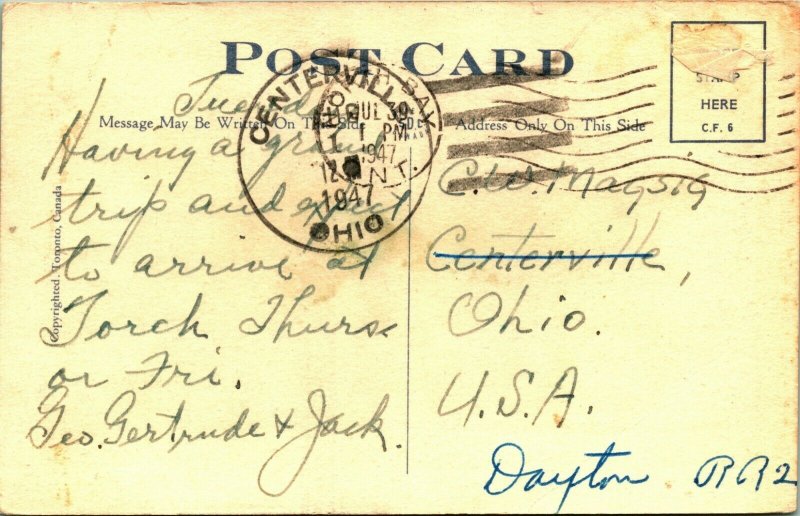 POST CARD
Message May Be Written On This Side
Address Only On This Side
STAMP
HERE
C.F. 6
CENTERVILLE
BAY
JUL 30
PM
1947
ONT.
12
1947
OHIO
Tuesday
Having a grand
trip and expect
to arrive at
Torch Thurs
or Fri.
Geo. Gertrude & Jack.
Copyrighted, Toronto, Canada
C.W. Magsig
Centerville,
Ohio.
U.S.A.
Dayton RR2